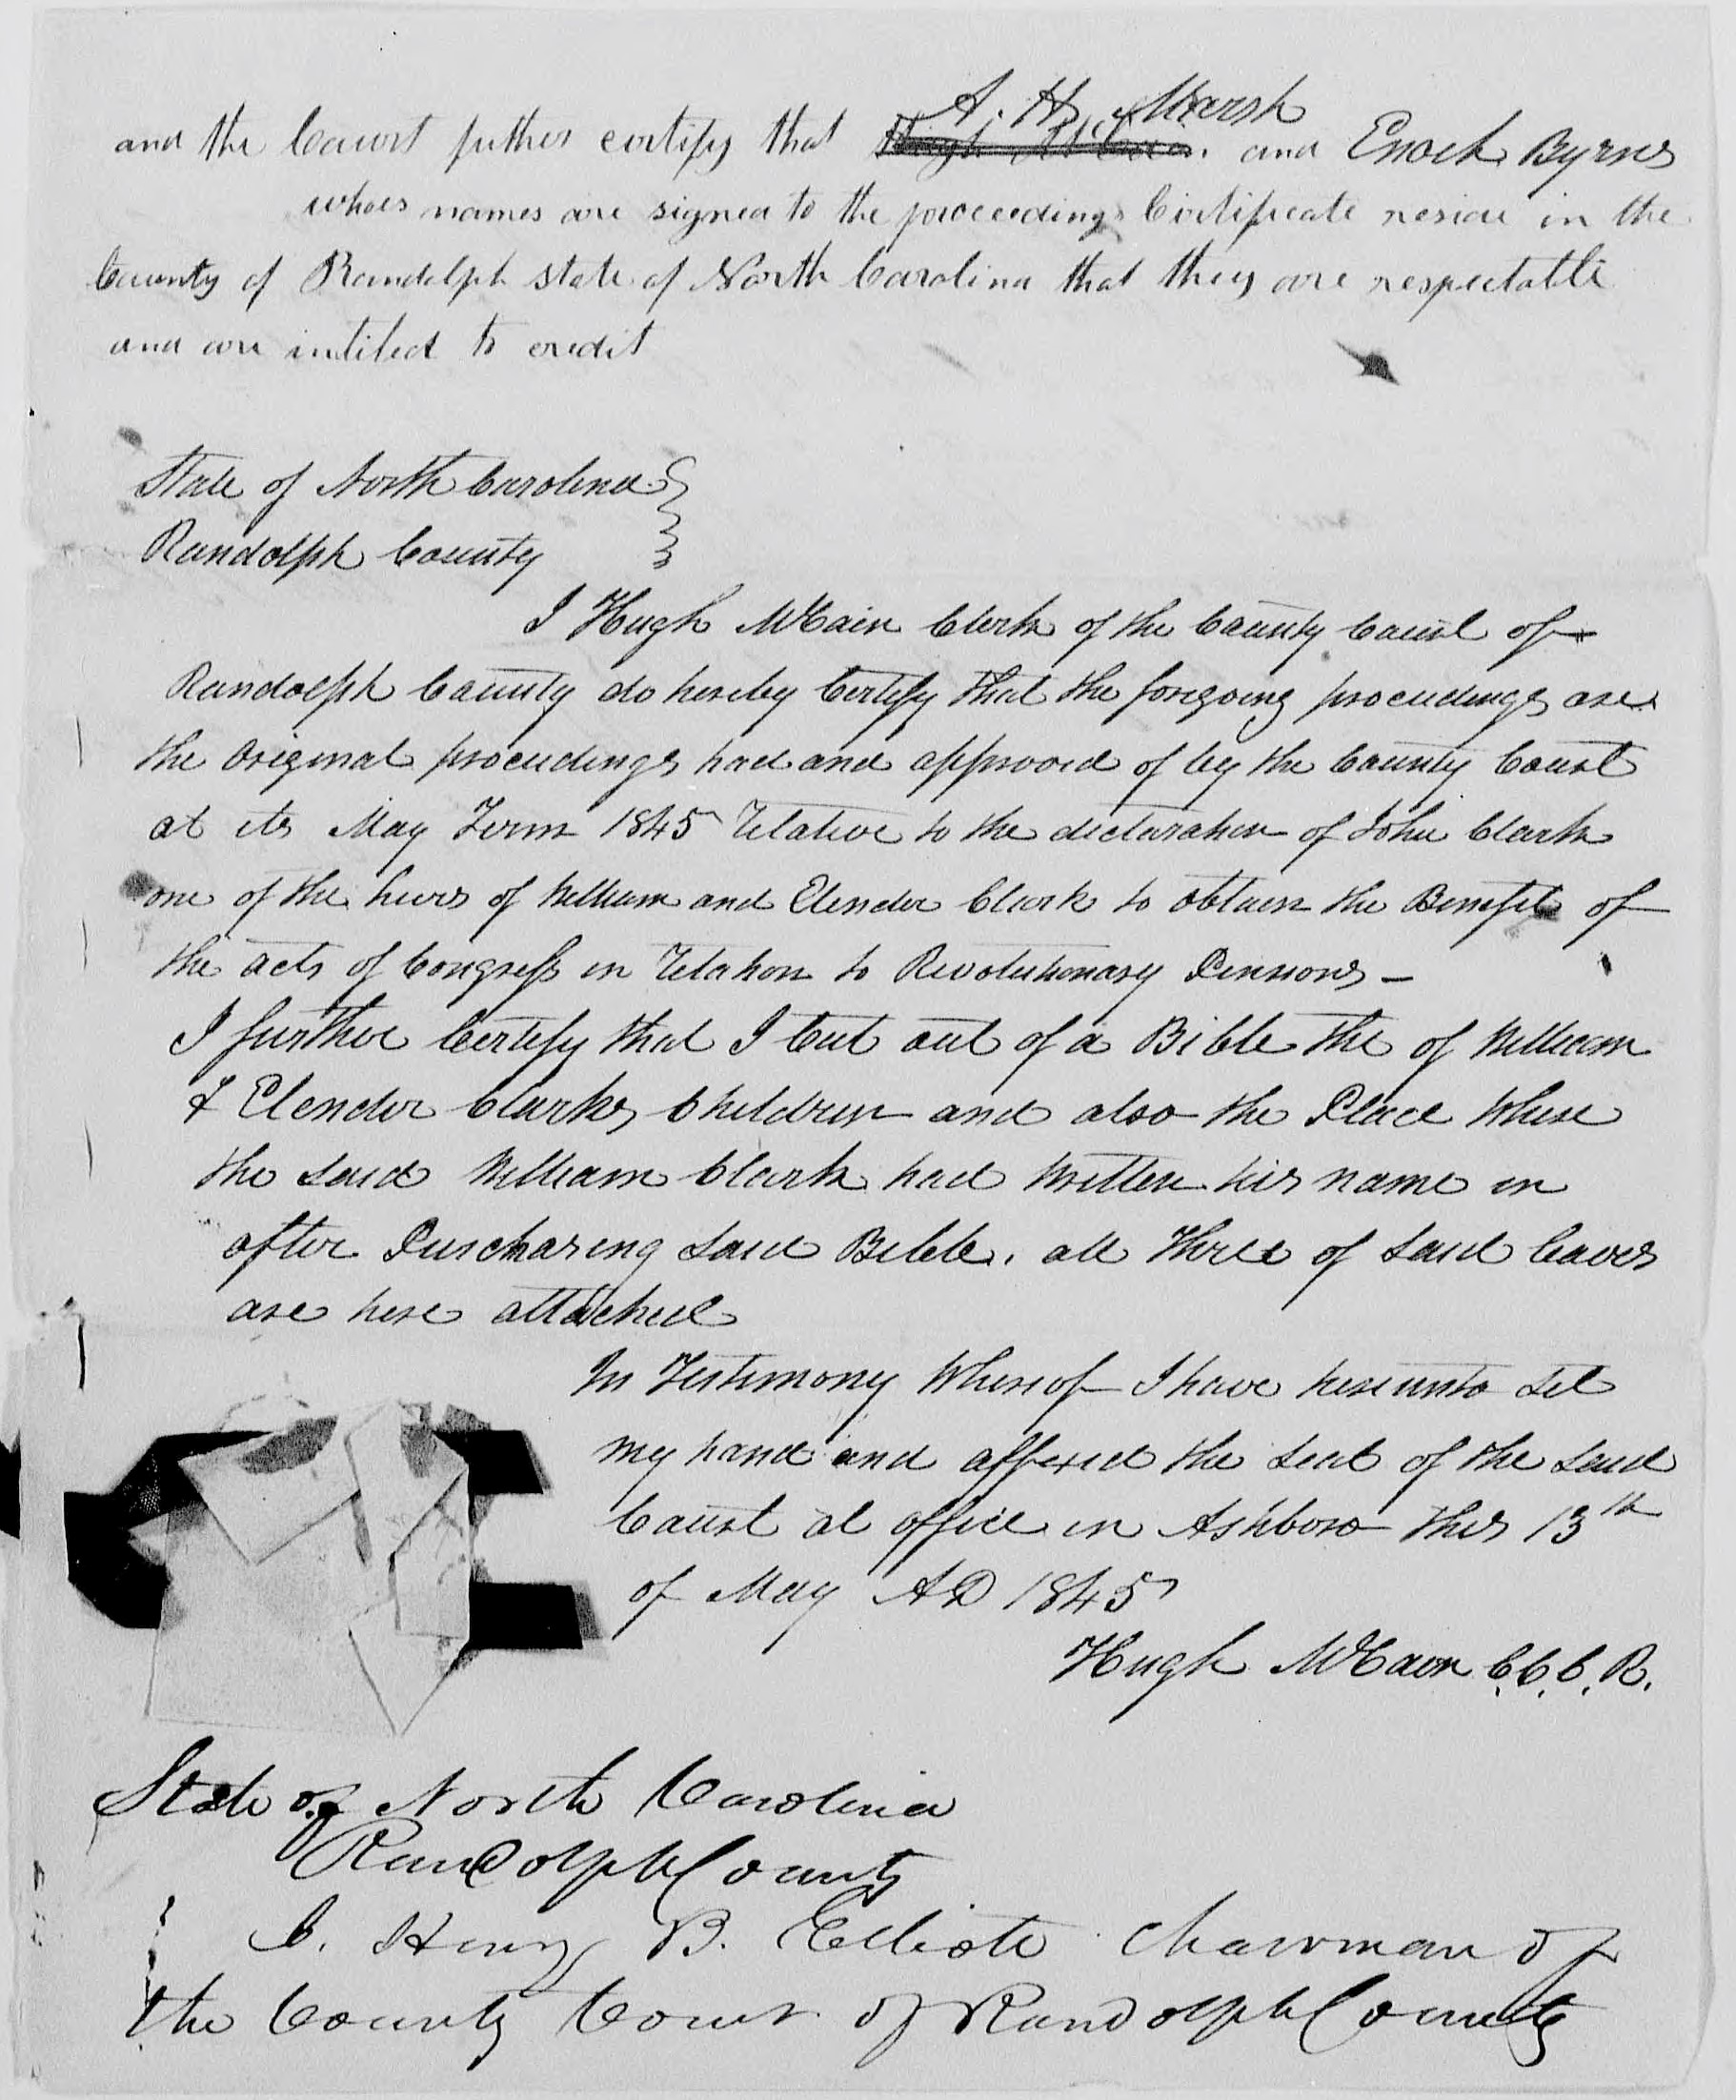 A. H. Marsh
and the Court futher certify that Hugh McCain. and Enoch Byrns
whoes names are signed to the proceeding Certificate reside in the
County of Randolph State of North Carolina that they are respectable
and are intiled to credit
State of North Carolina
Randolph County
I Hugh McCain Clerk of the County Court of
Randolph County do hereby Certify that the foregoing proceedings are
the Original proceedings had and approved of by the County Court
at its May Term 1845 Relative to the declaration of John Clark
one of the heirs of William and Elender Clark to obtain the Benefit of
the acts of Congress in Relation to Revolutionary Pensions —
I further Certify that I Cut out of a Bible the of William
& Elender Clarks Children and also the Place Where
the said William Clark had Written his name in
after Purchasing said Bible. all three of said leaves
are here attached
In Testimony Whereof I have hereunto set
my hand and affixed the seal of the said
Court at office in Ashboro this 13th
of May AD 1845
Hugh McCain C.C.C.R.
State of North Carolina
Randolph County
I. Henry B. Elliott Chairman of
the County Court of Randolph County